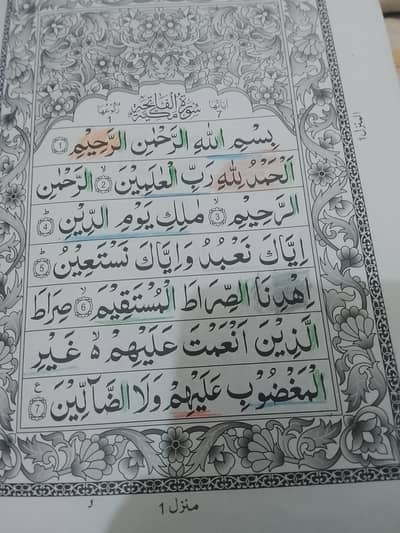 اٰيَاتُهَا 7 سُوْرَةُ الْفَاتِحَةِ مَكِّيَّةٌ رُكُوْعُهَا 1
بِسْمِ اللّٰهِ الرَّحْمٰنِ الرَّحِيْمِ ﴿1﴾
اَلْحَمْدُ لِلّٰهِ رَبِّ الْعٰلَمِيْنَ ۙ﴿2﴾ الرَّحْمٰنِ
الرَّحِيْمِ ۙ﴿3﴾ مٰلِكِ يَوْمِ الدِّيْنِ ؕ﴿4﴾
اِيَّاكَ نَعْبُدُ وَاِيَّاكَ نَسْتَعِيْنُ ؕ﴿5﴾
اِهْدِنَا الصِّرَاطَ الْمُسْتَقِيْمَ ۙ﴿6﴾ صِرَاطَ
الَّذِيْنَ اَنْعَمْتَ عَلَيْهِمْ ۙ۬ غَيْرِ
الْمَغْضُوْبِ عَلَيْهِمْ وَلَا الضَّآلِّيْنَ ﴿7﴾ ع
منزل 1